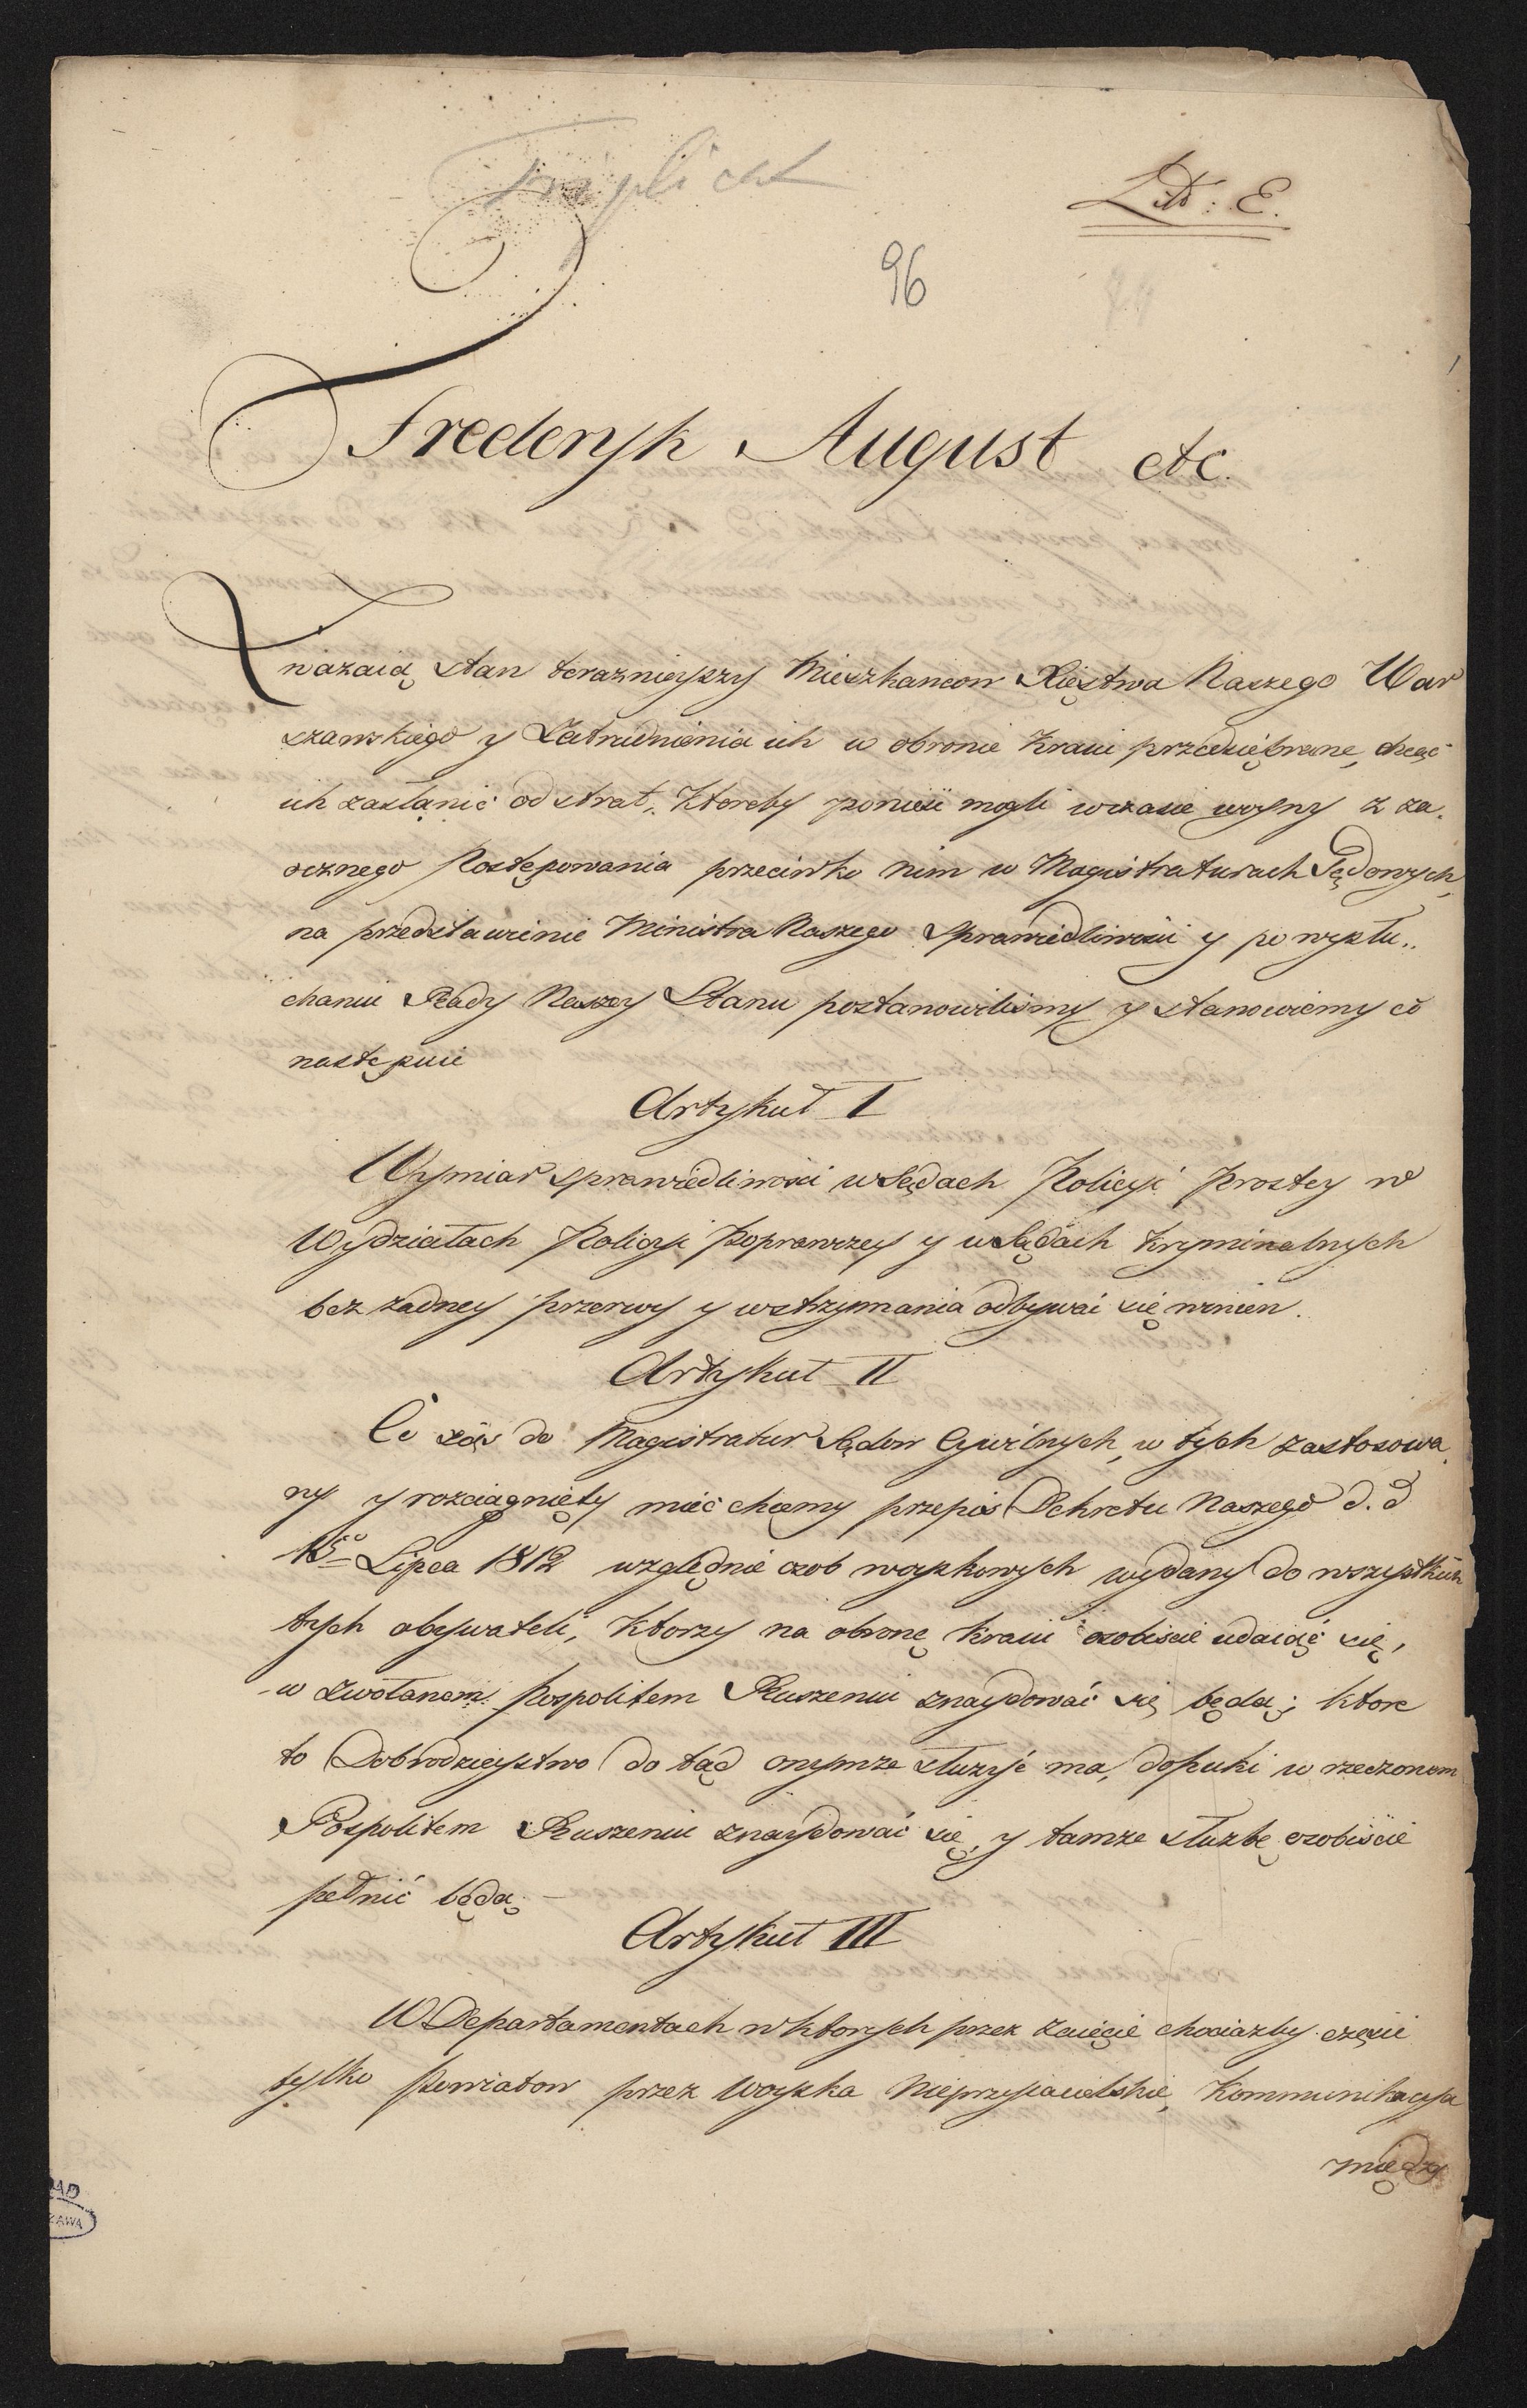 Triplicat
Litt: E.
96
Frederyk August etc.
Uważaiąc stan teraznieyszy Mieszkancow Xięstwa Naszego War
szawskiego y Zatrudnienia ich w obronie Kraiu przedsiębrane, chcąc
ich zasłanić od strat, ktoreby ponieść mogli wczasie woyny z za
ocznego Postępowania przeciwko nim w Magistraturach Sądowych,
na przedstawienie Ministra Naszego Sprawiedliwości y po wysłu„
chaniu Rady Naszey Stanu postanowiliśmy y stanowiemy co
następuie
Artykuł I
Wymiar sprawiedliwości w Sądach Policyi Prostey w
Wydziałach Policyi Poprawczey y w Sądach Kryminalnych
bez żadney przerwy y wstrzymania odbywać się winien.
Artykuł II
Co zaś do Magistratur Sądow Cywilnych, w tych zastosowa
ny y rozciągnięty mieć chcemy przepis Dekretu Naszego d. d
15go Lipca 1812 względnie osob woyskowych wydany do wszystkich
tych obywateli, ktorzy na obronę kraiu osobiscie udaiąc się,
w zwołanem Pospolitem Ruszeniu znaydować się będą; ktore
to Dobrodzieystwo do tąd onymze służyć ma, dopuki w rzeczonem
Pospolitem Ruszeniu znaydować się, y tamze służbę osobiście
pełnić będą. –
Artykuł III
W Departamentach w ktorych przez zaięcie chociazby części
tylko Powiatow przez woyska Nieprzyiacielskie, Kommunikacya
między